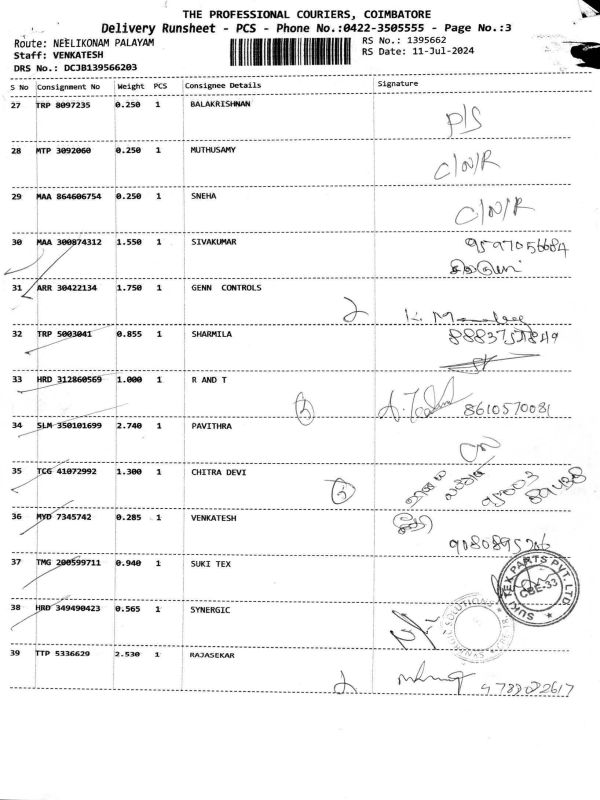 THE PROFESSIONAL COURIERS, COIMBATORE
Delivery Runsheet - PCS - Phone No.:0422-3505555 - Page No.:3
Route: NEELIKONAM PALAYAM
RS No.: 1395662
Staff: VENKATESH
RS Date: 11-Jul-2024
DRS No.: DCJB139566203
S No Consignment No Weight PCS Consignee Details Signature
27 TRP 8097235 0.250 1 BALAKRISHNAN
P/S
28 MTP 3092060 0.250 1 MUTHUSAMY
C/N/R
29 MAA 864606754 0.250 1 SNEHA
C/N/R
30 MAA 300874312 1.550 1 SIVAKUMAR
31 ARR 30422134 1.750 1 GENN CONTROLS
2
32 TRP 5003041 0.855 1 SHARMILA
33 HRD 312860569 1.000 1 R AND T
8610570081
34 SLM 350101699 2.740 1 PAVITHRA
35 TCG 41072992 1.300 1 CHITRA DEVI
36 MYD 7345742 0.285 1 VENKATESH
37 TMG 200599711 0.940 1 SUKI TEX
SUKI TEX PARTS PVT. LTD.
CBE-33
38 HRD 349490423 0.565 1 SYNERGIC
39 TTP 5336629 2.530 1 RAJASEKAR
2